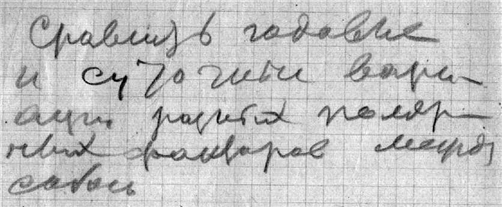 Сравнить годовые
и суточные вари-
ации разных поляр-
ных факторов между
собою